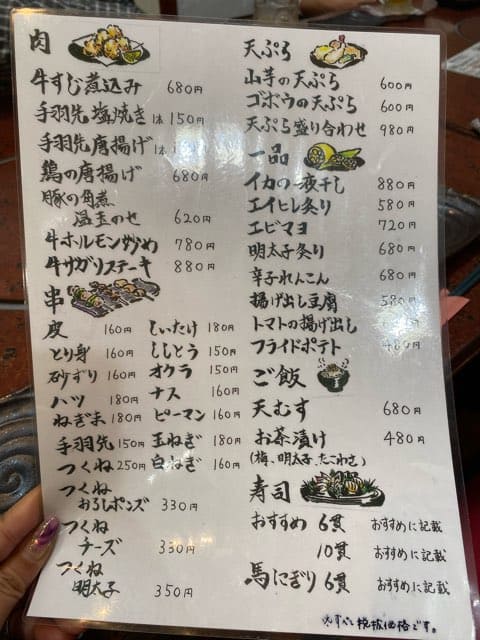 肉
牛すじ煮込み 680円
手羽先塩焼き 1本 150円
手羽先唐揚げ 1本
鶏の唐揚げ 680円
豚の角煮
温玉のせ 620円
牛ホルモン炒め 780円
牛サガリステーキ 880円
串
皮 160円
とり身 160円
砂ずり 160円
ハツ 180円
ねぎま 180円
手羽先 150円
つくね 250円
つくね
おろしポンズ 330円
つくね
チーズ 330円
つくね
明太子 350円
しいたけ 180円
ししとう 150円
オクラ 150円
ナス 160円
ピーマン 160円
玉ねぎ 180円
白ねぎ 160円
天ぷら
山芋の天ぷら 600円
ゴボウの天ぷら 600円
天ぷら盛り合わせ 980円
一品
イカの一夜干し 880円
エイヒレ炙り 580円
エビマヨ 720円
明太子炙り 680円
辛子れんこん 680円
揚げ出し豆腐 580円
トマトの揚げ出し
フライドポテト 480円
ご飯
天むす 680円
お茶漬け 480円
(梅、明太子、たこわさ)
寿司
おすすめ 6貫 おすすめに記載
10貫 おすすめに記載
馬にぎり 6貫 おすすめに記載
※すべて税抜価格です。